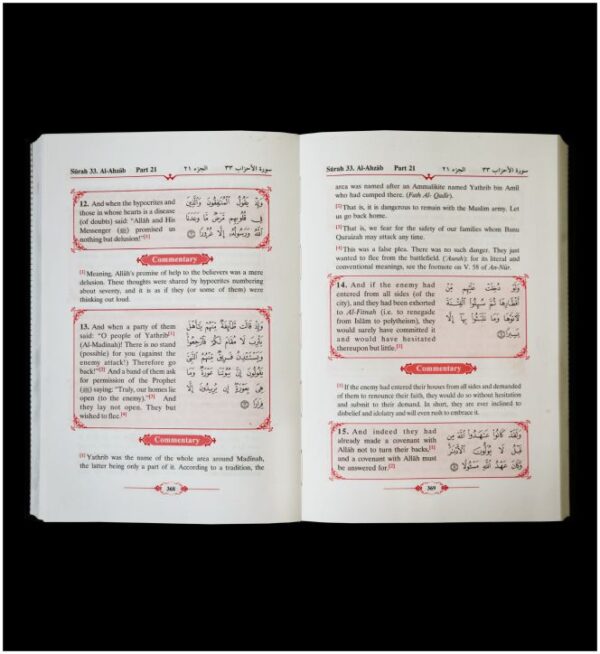 Sûrah 33. Al-Ahzâb Part 21 الجزء ٢١ سورة الأحزاب ٣٣
12. And when the hypocrites and
those in whose hearts is a disease
(of doubts) said: "Allâh and His
Messenger (ﷺ) promised us
nothing but delusion!"[1]
وَإِذْ يَقُولُ ٱلْمُنَـٰفِقُونَ وَٱلَّذِينَ
فِى قُلُوبِهِم مَّرَضٌ مَّا وَعَدَنَا
ٱللَّهُ وَرَسُولُهُۥٓ إِلَّا غُرُورًا ١٢
Commentary
[1] Meaning, Allâh's promise of help to the believers was a mere
delusion. These thoughts were shared by hypocrites numbering
about seventy, and it is as if they (or some of them) were
thinking out loud.
13. And when a party of them
said: "O people of Yathrib[1]
(Al-Madinah)! There is no stand
(possible) for you (against the
enemy attack!) Therefore go
back!"[2] And a band of them ask
for permission of the Prophet
(ﷺ) saying: "Truly, our homes lie
open (to the enemy)."[3] And
they lay not open. They but
wished to flee.[4]
وَإِذْ قَالَت طَّآئِفَةٌ مِّنْهُمْ يَـٰٓأَهْلَ
يَثْرِبَ لَا مُقَامَ لَكُمْ فَٱرْجِعُوا۟
وَيَسْتَـْٔذِنُ فَرِيقٌ مِّنْهُمُ ٱلنَّبِىَّ
يَقُولُونَ إِنَّ بُيُوتَنَا عَوْرَةٌ وَمَا
هِىَ بِعَوْرَةٍ إِن يُرِيدُونَ إِلَّا
فِرَارًا ١٣
Commentary
[1] Yathrib was the name of the whole area around Madinah,
the latter being only a part of it. According to a tradition, the
368
Sûrah 33. Al-Ahzâb Part 21 الجزء ٢١ سورة الأحزاب ٣٣
area was named after an Ammalikite named Yathrib bin Amîl
who had camped there. (Fath Al- Qadîr).
[2] That is, it is dangerous to remain with the Muslim army. Let
us go back home.
[3] That is, we fear for the safety of our families whom Banu
Quraizah may attack any time.
[4] This was a false plea. There was no such danger. They just
wanted to flee from the battlefield. ('Aurah): for its literal and
conventional meanings, see the footnote on V. 58 of An-Nûr.
14. And if the enemy had
entered from all sides (of the
city), and they had been exhorted
to Al-Fitnah (i.e. to renegade
from Islâm to polytheism), they
would surely have committed it
and would have hesitated
thereupon but little.[1]
وَلَوْ دُخِلَتْ عَلَيْهِم مِّنْ
أَقْطَارِهَا ثُمَّ سُئِلُوا۟ ٱلْفِتْنَةَ
لَـَٔاتَوْهَا وَمَا تَلَبَّثُوا۟ بِهَآ إِلَّا
يَسِيرًا ١٤
Commentary
[1] If the enemy had entered their houses from all sides and demanded
of them to renounce their faith, they would do so without hesitation
and submit to their demand. In short, they are ever inclined to
disbelief and idolatry and will even rush to embrace it.
15. And indeed they had
already made a covenant with
Allâh not to turn their backs,[1]
and a covenant with Allâh must
be answered for.[2]
وَلَقَدْ كَانُوا۟ عَـٰهَدُوا۟ ٱللَّهَ مِن
قَبْلُ لَا يُوَلُّونَ ٱلْأَدْبَـٰرَ
وَكَانَ عَهْدُ ٱللَّهِ مَسْـُٔولًا ١٥
369